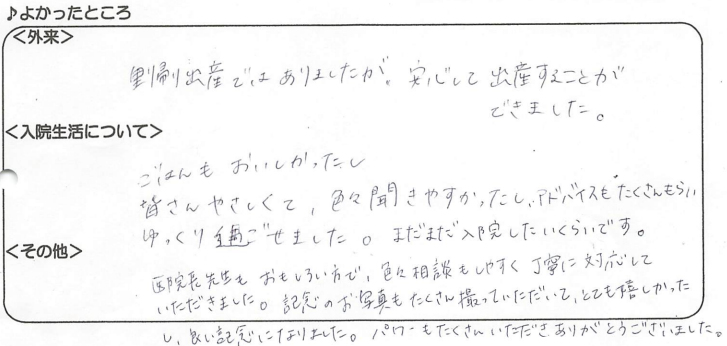 ♪よかったところ
<外来>
里帰り出産ではありましたが、安心して出産することが
できました。
<入院生活について>
ごはんもおいしかったし
皆さんやさしくて、色々聞きやすかったし、アドバイスもたくさんもらい
ゆっくり過ごせました。まだまだ入院したいくらいです。
<その他>
院長先生もおもしろい方で、色々相談もしやすく丁寧に対応して
いただきました。記念のお写真もたくさん撮っていただいて、とても嬉しかった
し、良い記念になりました。パワーもたくさんいただきありがとうございました。